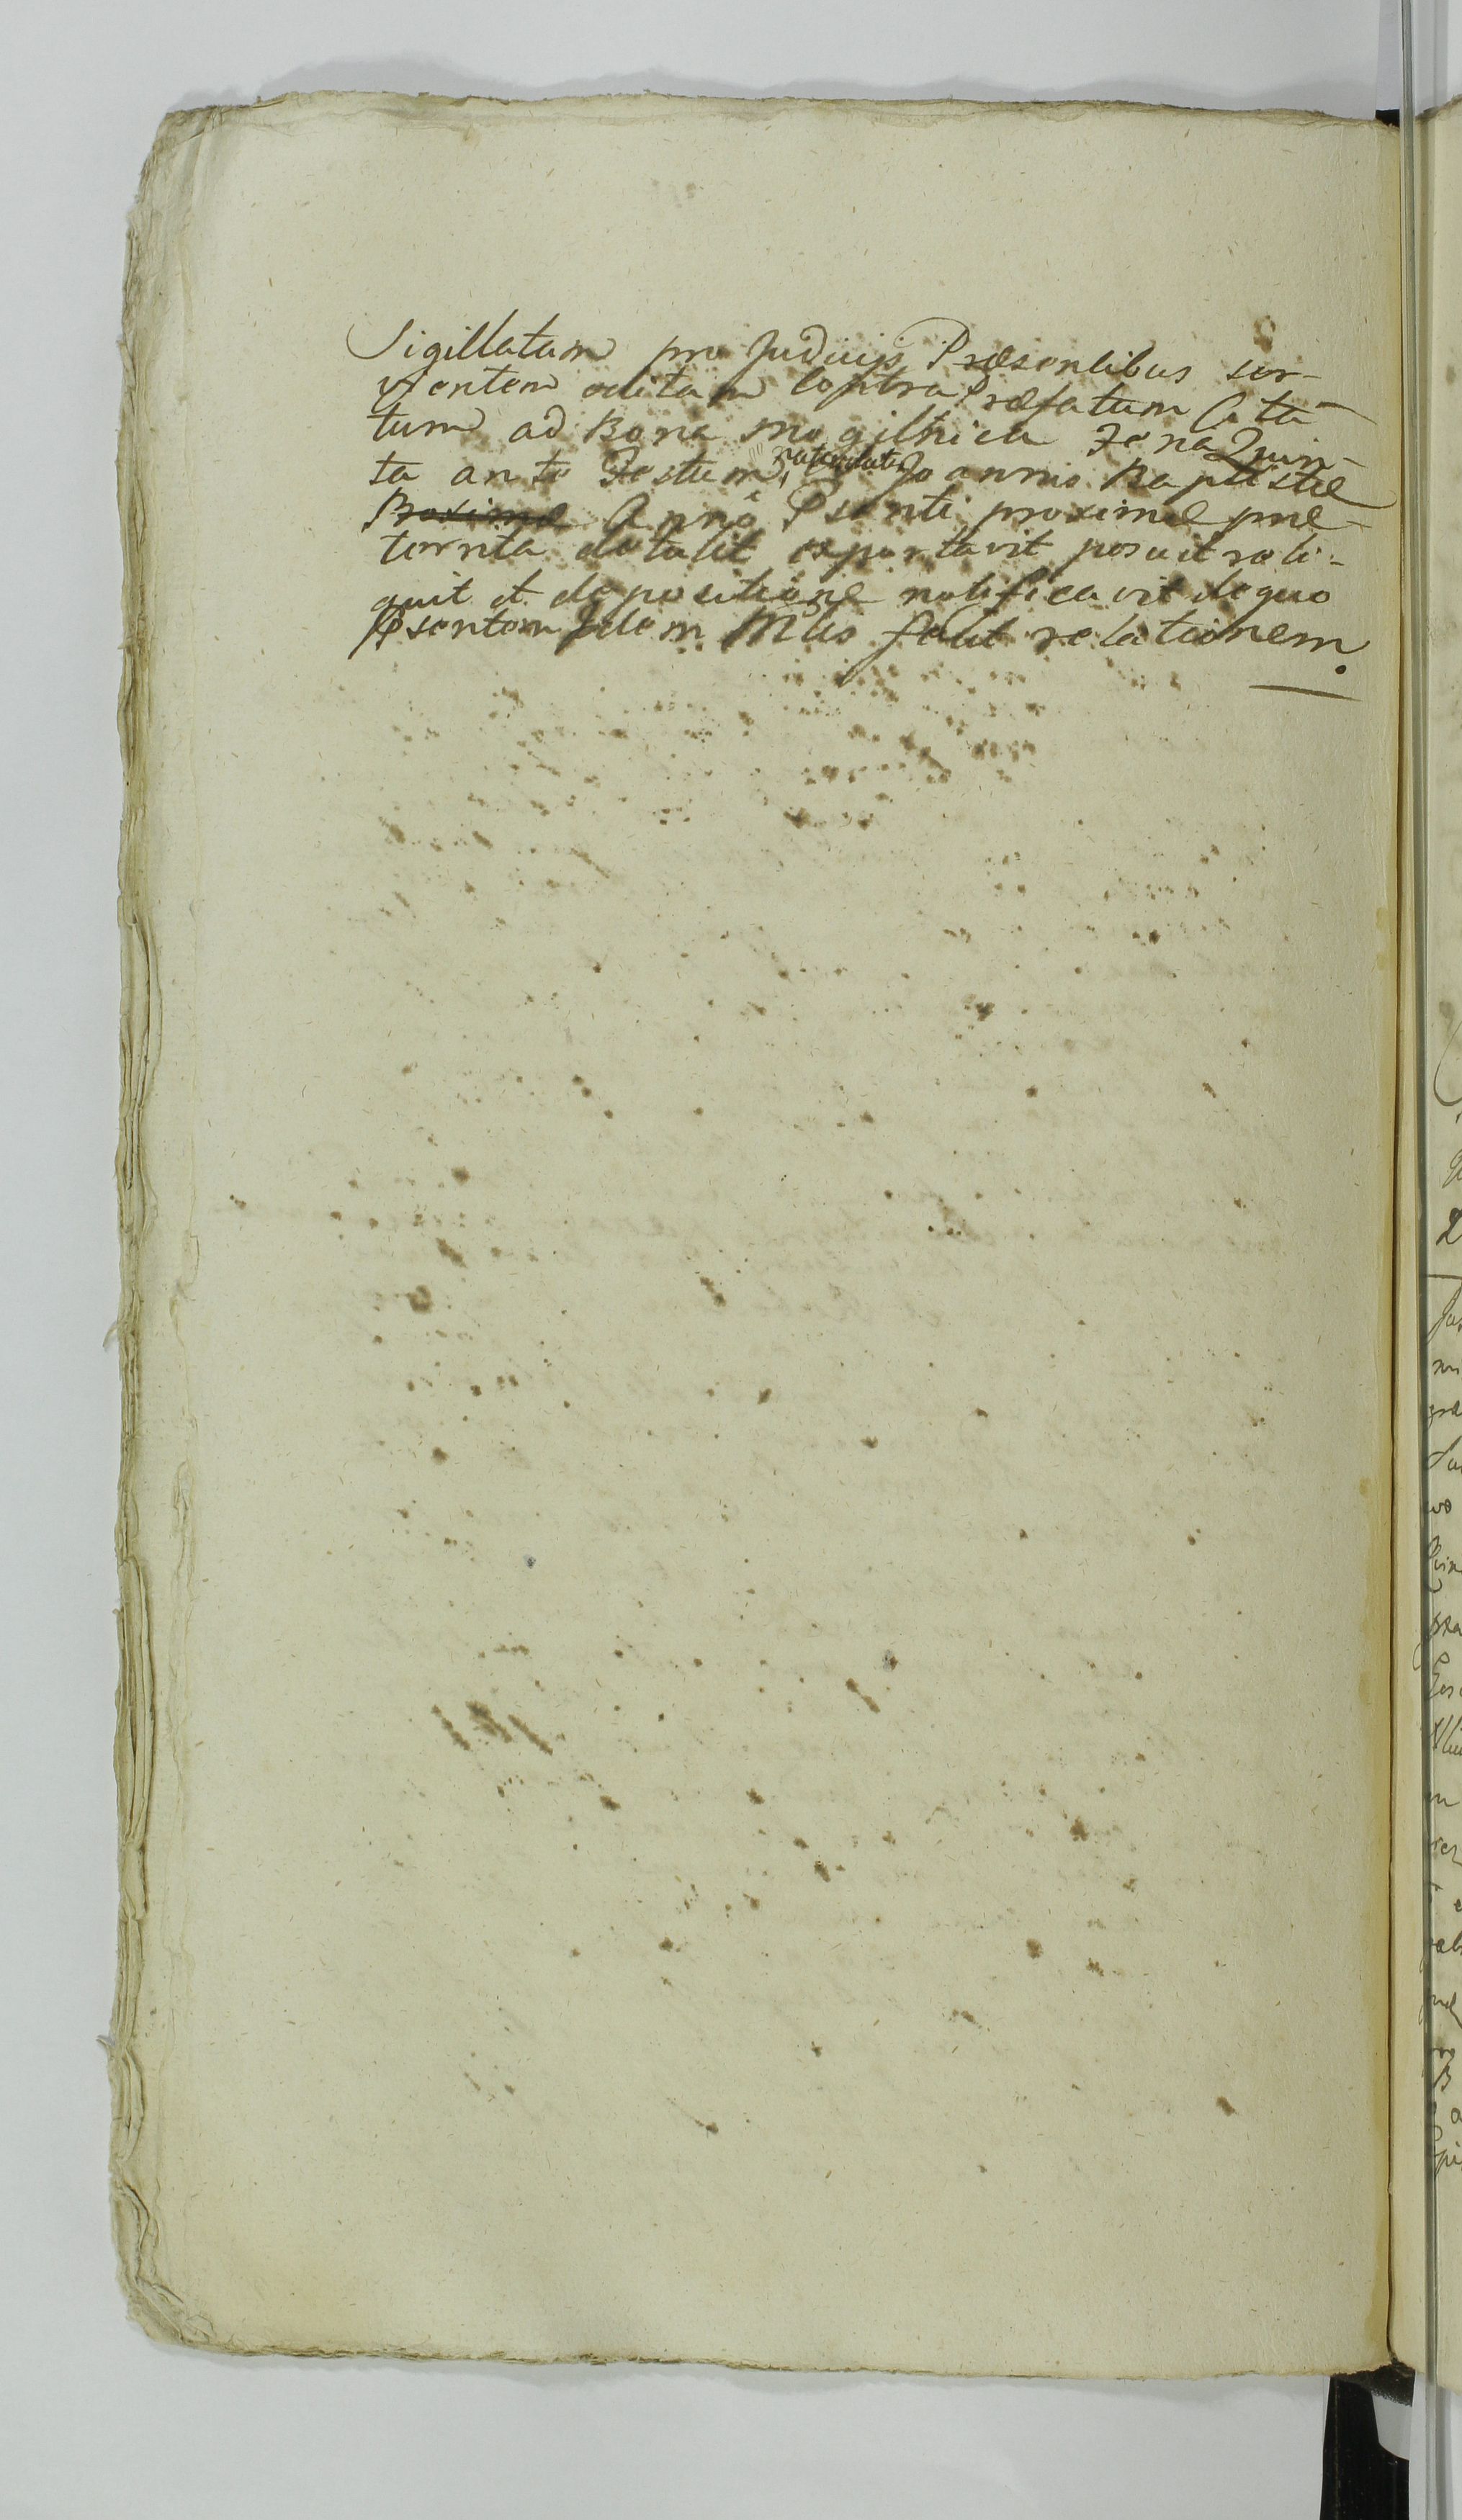 Sigillatam pro Judicijs Præsentibus ser-
vientem editam Contra Præfatum Cita-
tum ad Bona Mogilnica Feria Quin-
ta ante Festum nativitatis Joannis Baptistæ
Proximæ Annô Psenti proxime præ-
territa detulit exportavit posuit reli-
quit et de positione notificavit de quo
Psentem Idem Mlis fecit relationem.